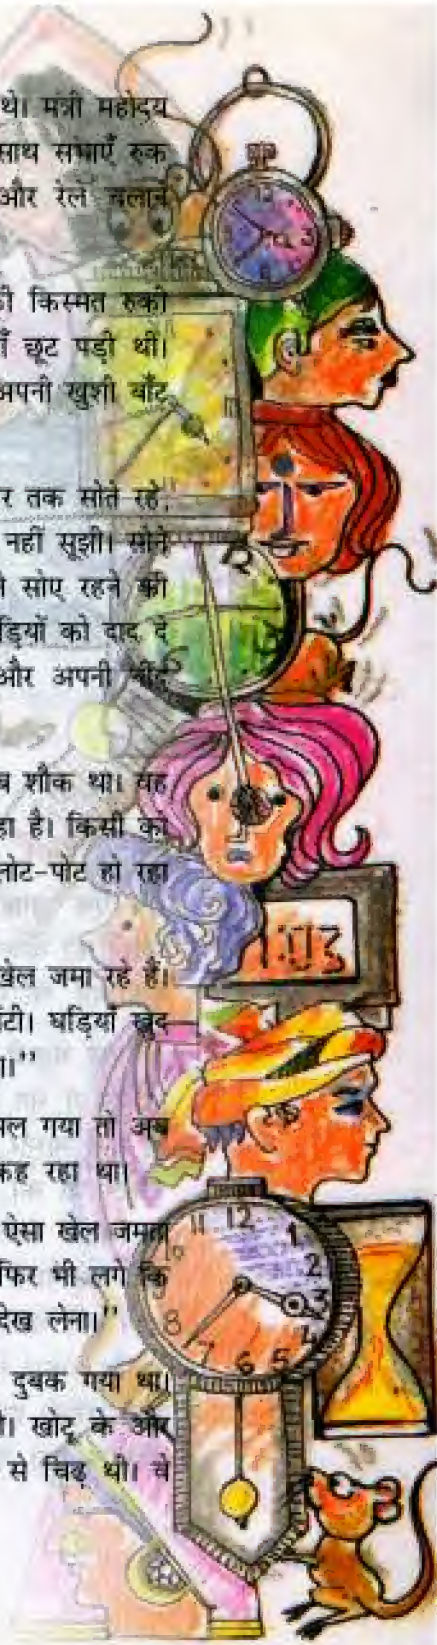 थे। मंत्री महोदय
साथ सभाएँ रुक
और रेलें चलाने
की किस्मत रुकी
छूट पड़ी थीं।
अपनी खुशी बाँट
तक सोते रहे,
नहीं सूझी। सोने
सोए रहने की
घड़ियों को दाद दे
और अपनी नींद
शौक था। वह
रहा है। किसी को
लोट-पोट हो रहा
खेल जमा रहे हैं।
घड़ियाँ खुद
गया तो अब
कह रहा था।
ऐसा खेल जमता
फिर भी लगे कि
देख लेना।”
दुबक गया था।
खोटू के और
से चिढ़ थी। वे
12
1:03
11 12 1
10 2
9 3
8 4
7 6 5